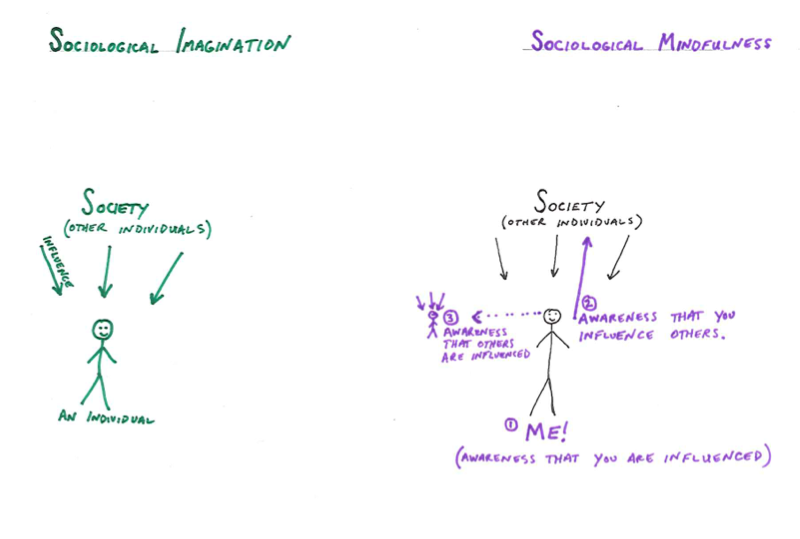 SOCIOLOGICAL IMAGINATION
SOCIETY
(OTHER INDIVIDUALS)
INFLUENCE
AN INDIVIDUAL
SOCIOLOGICAL MINDFULNESS
SOCIETY
(OTHER INDIVIDUALS)
② AWARENESS THAT YOU
INFLUENCE OTHERS.
③ AWARENESS
THAT OTHERS
ARE INFLUENCED
① ME!
(AWARENESS THAT YOU ARE INFLUENCED)